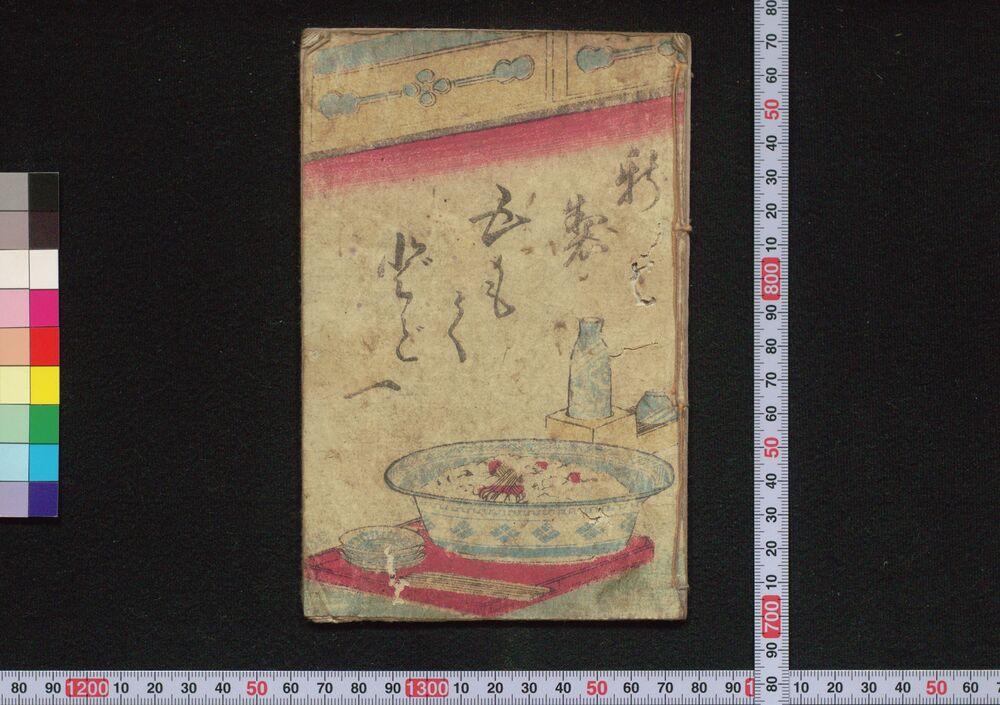 新製
五もく
ど一
80 70 60 50 40 30 20 10 800 90 80 70 60 50 40 30 20 10 700 90 80
80 90 1200 10 20 30 40 50 60 70 80 90 1300 10 20 30 40 50 60 70 80 90 1 10 20 30 40 50 60 7